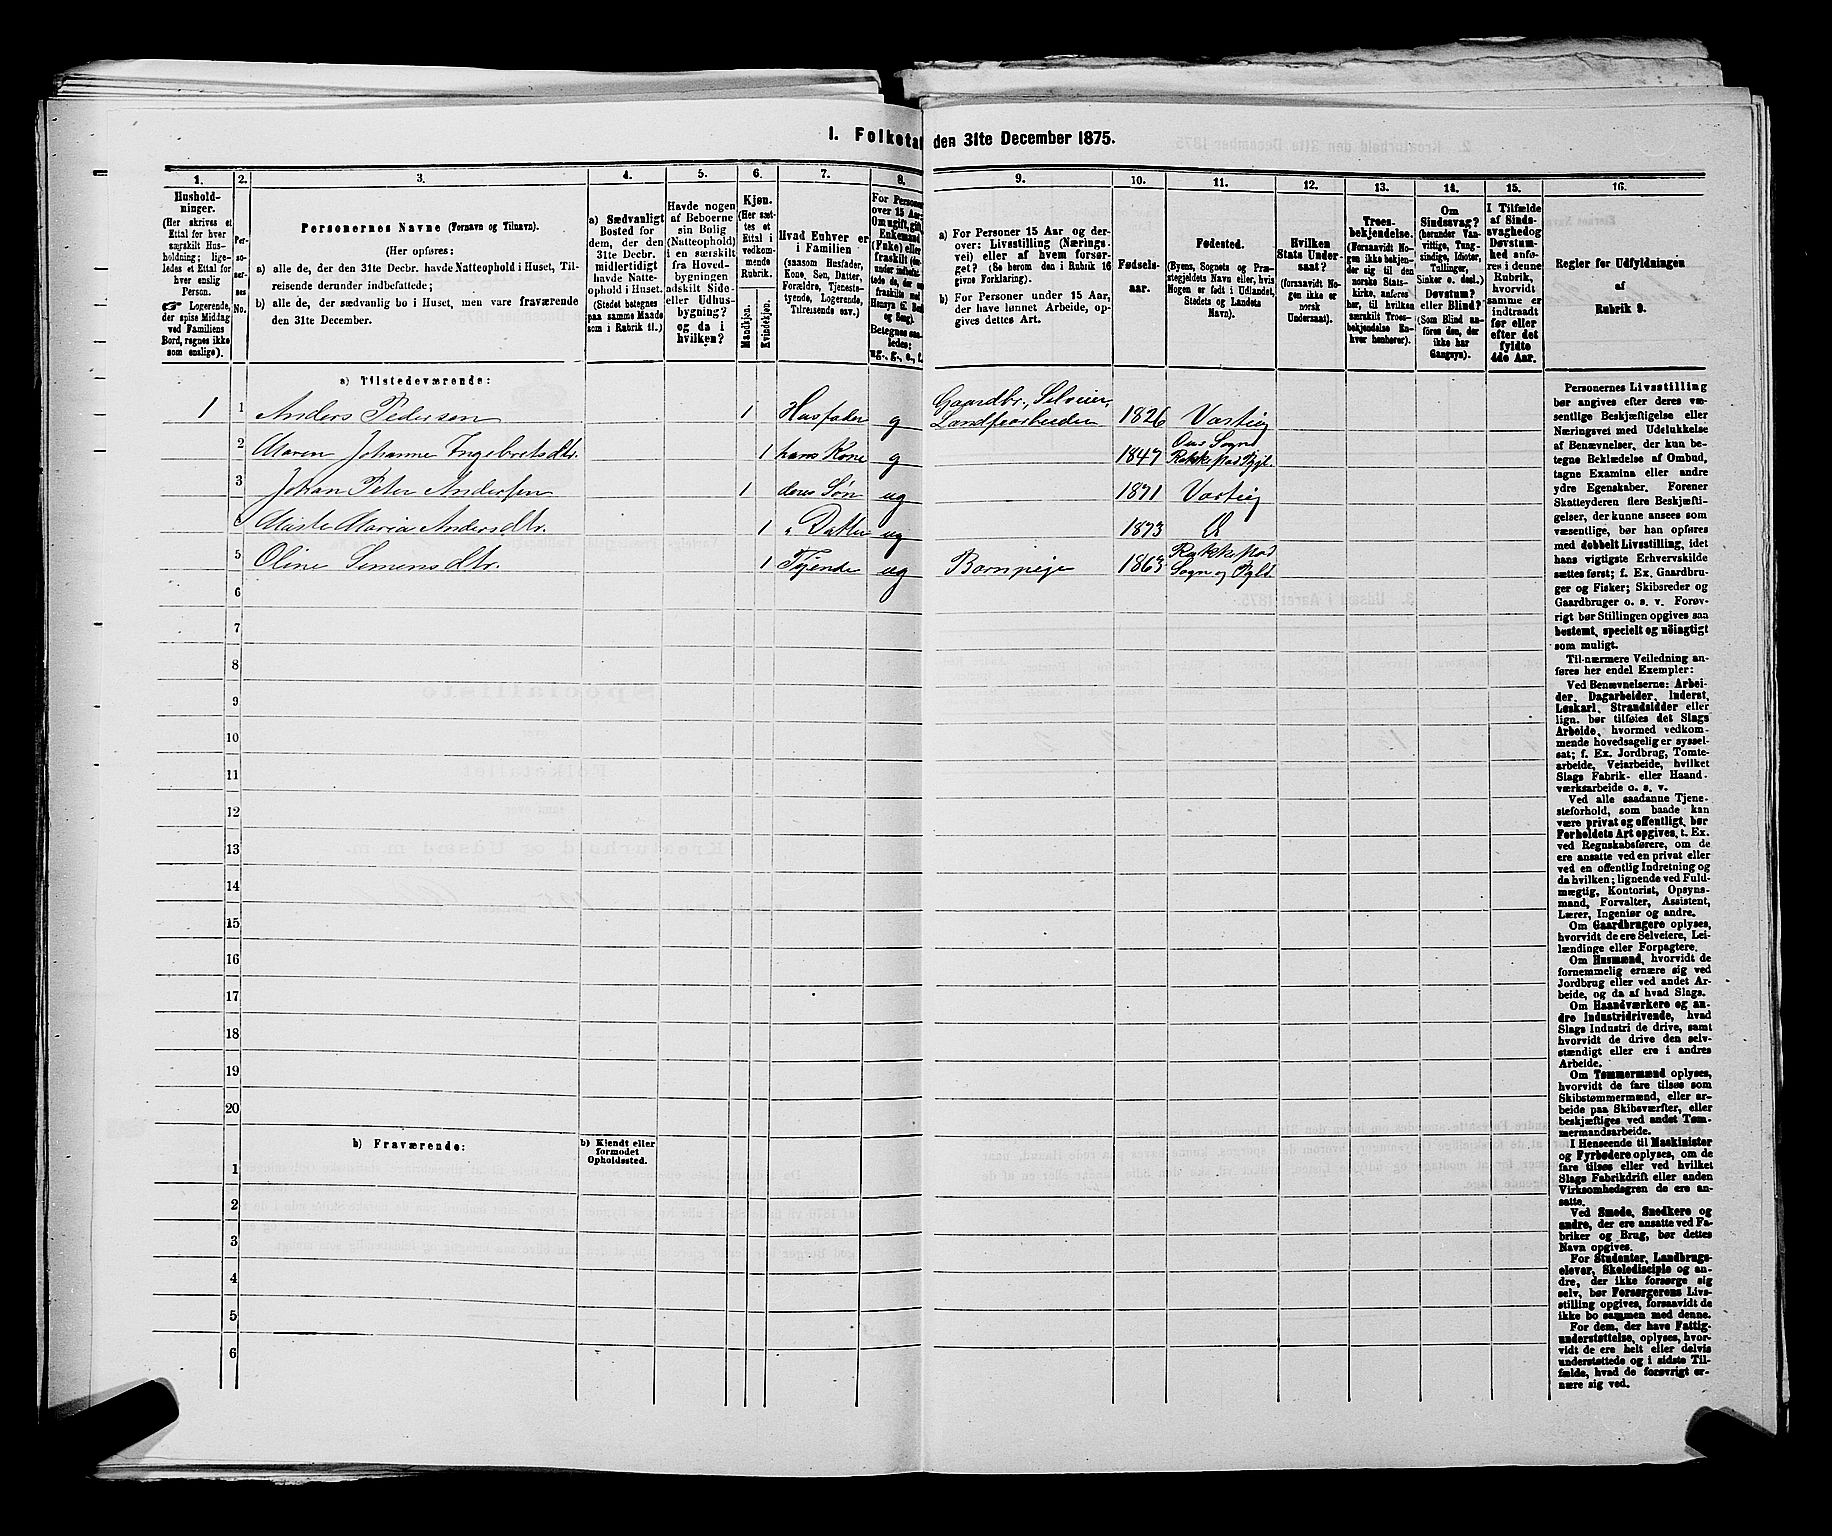 I. Folketal den 31te December 1875.
1.
2.
3.
4.
5.
6.
7.
8.
9.
10.
11.
12.
13.
14.
15.
16.
Hushold-
ninger.
(Her skrives et
Ettal for hver
særskilt Hus-
holdning; lige-
ledes et Ettal for
hver enslig
Person.
☞ Logerende,
der spise Middag
ved Familiens
Bord, regnes ikke
som enslige).
Per-
so-
ner-
nes
No.
Personernes Navne (Fornavn og Tilnavn).
(Her opføres:
a) alle de, der den 31te Decbr. havde Natteophold i Huset, Til-
reisende derunder indbefattede;
b) alle de, der sædvanlig bo i Huset, men vare fraværende
den 31te December.
a) Sædvanligt
Bosted for
dem, der den
31te Decbr.
midlertidigt
havde Natte-
ophold i Huset.
(Stedet betegnes
paa samme Maade
som i Rubrik 11.)
Havde nogen
af Beboerne
sin Bolig
(Natteophold)
i en særskilt
fra Hoved-
bygningen
adskilt Side-
eller Udhus-
bygning?
og da i
hvilken?
Kjøn.
(Her sæt-
tes et
Ettal i
vedkom-
mende
Rubrik.
Mandkjøn.
Kvindekjøn.
Hvad Enhver er
i Familien
(saasom Husfader,
Kone, Søn, Datter,
Forældre, Tjeneste-
tyende, Logerende,
Tilreisende osv.)
For Personer
over 15 Aar:
Om ugift, gift,
Enkemand
(Enke) eller
fraskilt
Betegnes saa-
ledes:
ug., g., e., f.
a) For Personer 15 Aar og der-
over: Livsstilling (Nærings-
vei) eller af hvem forsør-
get? (Se herom den i Rubrik 16
givne Forklaring).
b) For Personer under 15 Aar,
der have lønnet Arbeide, op-
gives dettes Art.
Fødsels-
aar.
Fødested.
(Byens, Sognets og Præ-
stegjeldets Navn eller, hvis
Nogen er født i Udlandet,
Stedets og Landets
Navn).
Hvilken
Stats Under-
saat?
(forsaavidt No-
gen ikke er
norsk
Undersaat).
Troes-
bekjendelse.
(Forsaavidt No-
gen ikke bekjen-
der sig til den
norske Stats-
kirke, anføres
her, til hvilken
særskilt Troes-
bekjendelse En-
hver henhører).
Om
Sindssvag?
(herunder Van-
vittige, Tung-
sindige, Idioter,
Tullinger,
Sinker o. desl.)
Døvstum?
eller Blind?
(Som Blind an-
føres den, der
ikke har
Gangsyn).
I Tilfælde
af Sinds-
svaghed og
Døvstum-
hed anfø-
res i denne
Rubrik,
hvorvidt
samme er
indtraadt
før eller
efter det
fyldte
4de Aar.
Regler for Udfyldningen
af
Rubrik 9.
a) Tilstedeværende:
1 1 Anders Pedersen 1 Husfader g Gaardbr., Selveier, Landfearbeider 1826 Varteig
2 Maren Johanne Ingebretsdtr. 1 hans Kone g 1847 Øus Sogn Rakkestad Pgl.
3 Johan Peter Andersen 1 deres Søn ug 1871 Varteig
Maria Andersdtr. 1 „ Datter ug 1873
5 Oline Simensdtr. 1 Tyende ug Barnpige 1863 Rakkestad Sogn og Pgld.
6
7
8
9
10
11
12
13
14
15
16
17
18
19
20
b) Fraværende:
b) Kjendt eller
formodet
Opholdssted.
1
2
3
4
5
6
Personernes Livsstilling
bør angives efter deres væ-
sentlige Beskjæftigelse eller
Næringsvei med Udelukkelse
af Benævnelser, der kun be-
tegne Beklædelse af Ombud,
tagne Examina eller andre
ydre Egenskaber. Forener
Skatteyderen flere Beskjæfti-
gelser, der kunne ansees som
væsentlige, bør han opføres
med dobbelt Livsstilling, idet
hans vigtigste Erhvervskilde
sættes først; f. Ex. Gaardbru-
ger og Fisker; Skibsreder og
Gaardbruger o. s. v. Forøv-
rigt bør Stillingen opgives saa
bestemt, specielt og nöiagtigt
som muligt.
Til nærmere Veiledning an-
føres her endel Exempler:
Ved Benævnelserne: Arbei-
der, Dagarbeider, Inderst,
Løskarl, Strandsidder eller
lign. bør tilføies det Slags
Arbeide, hvormed vedkom-
mende hovedsagelig er syssel-
sat; f. Ex. Jordbrug, Tomte-
arbeide, Veiarbeide, hvilket
Slags Fabrik- eller Haand-
værksarbeide o. s. v.
Ved alle saadanne Tjene-
steforhold, som baade kan
være privat og offentligt, bør
Forholdets Art opgives, t. Ex.
ved Regnskabsførere, om de
ere ansatte ved en privat eller
ved en offentlig Indretning og
da hvilken; lignende ved Fuld-
mægtig, Kontorist, Opsyns-
mand, Forvalter, Assistent,
Lærer, Ingeniør og andre.
Om Gaardbrugere oplyses,
hvorvidt de ere Selveiere, Lei-
lændinge eller Forpagtere.
Om Husmænd, hvorvidt de
fornemmelig ernære sig ved
Jordbrug eller ved andet Ar-
beide, og da af hvad Slags.
Om Haandværkere og an-
dre Industridrivende, hvad
Slags Industri de drive, samt
hvorvidt de drive den selv-
stændigt eller ere i andres
Arbeide.
Om Tømmermænd oplyses,
hvorvidt de fare tilsøs som
Skibstømmermænd, eller ar-
beide paa Skibsværfter, eller
beskjæftiges ved andet Tøm-
mermandsarbeide.
I Henseende til Maskinister
og Fyrbødere oplyses, om de
fare tilsøs eller ved hvilket
Slags Fabrikdrift eller anden
Virksomhedsgren de ere an-
satte.
Ved Smede, Snedkere og
andre, der ere ansatte ved Fa-
briker og Brug, bør dettes
Navn opgives.
For Studenter, Landbrugs-
elever, Skoledisciple og an-
dre, der ikke forsørge sig
selv, bør Forsørgerens Livs-
stilling opgives, forsaavidt de
ikke bo sammen med denne.
For dem, der have Fattig-
understøttelse, oplyses, hvor-
vidt de ere helt eller delvis
understøttede og i sidste Til-
fælde, hvad de forøvrigt er-
nære sig ved.